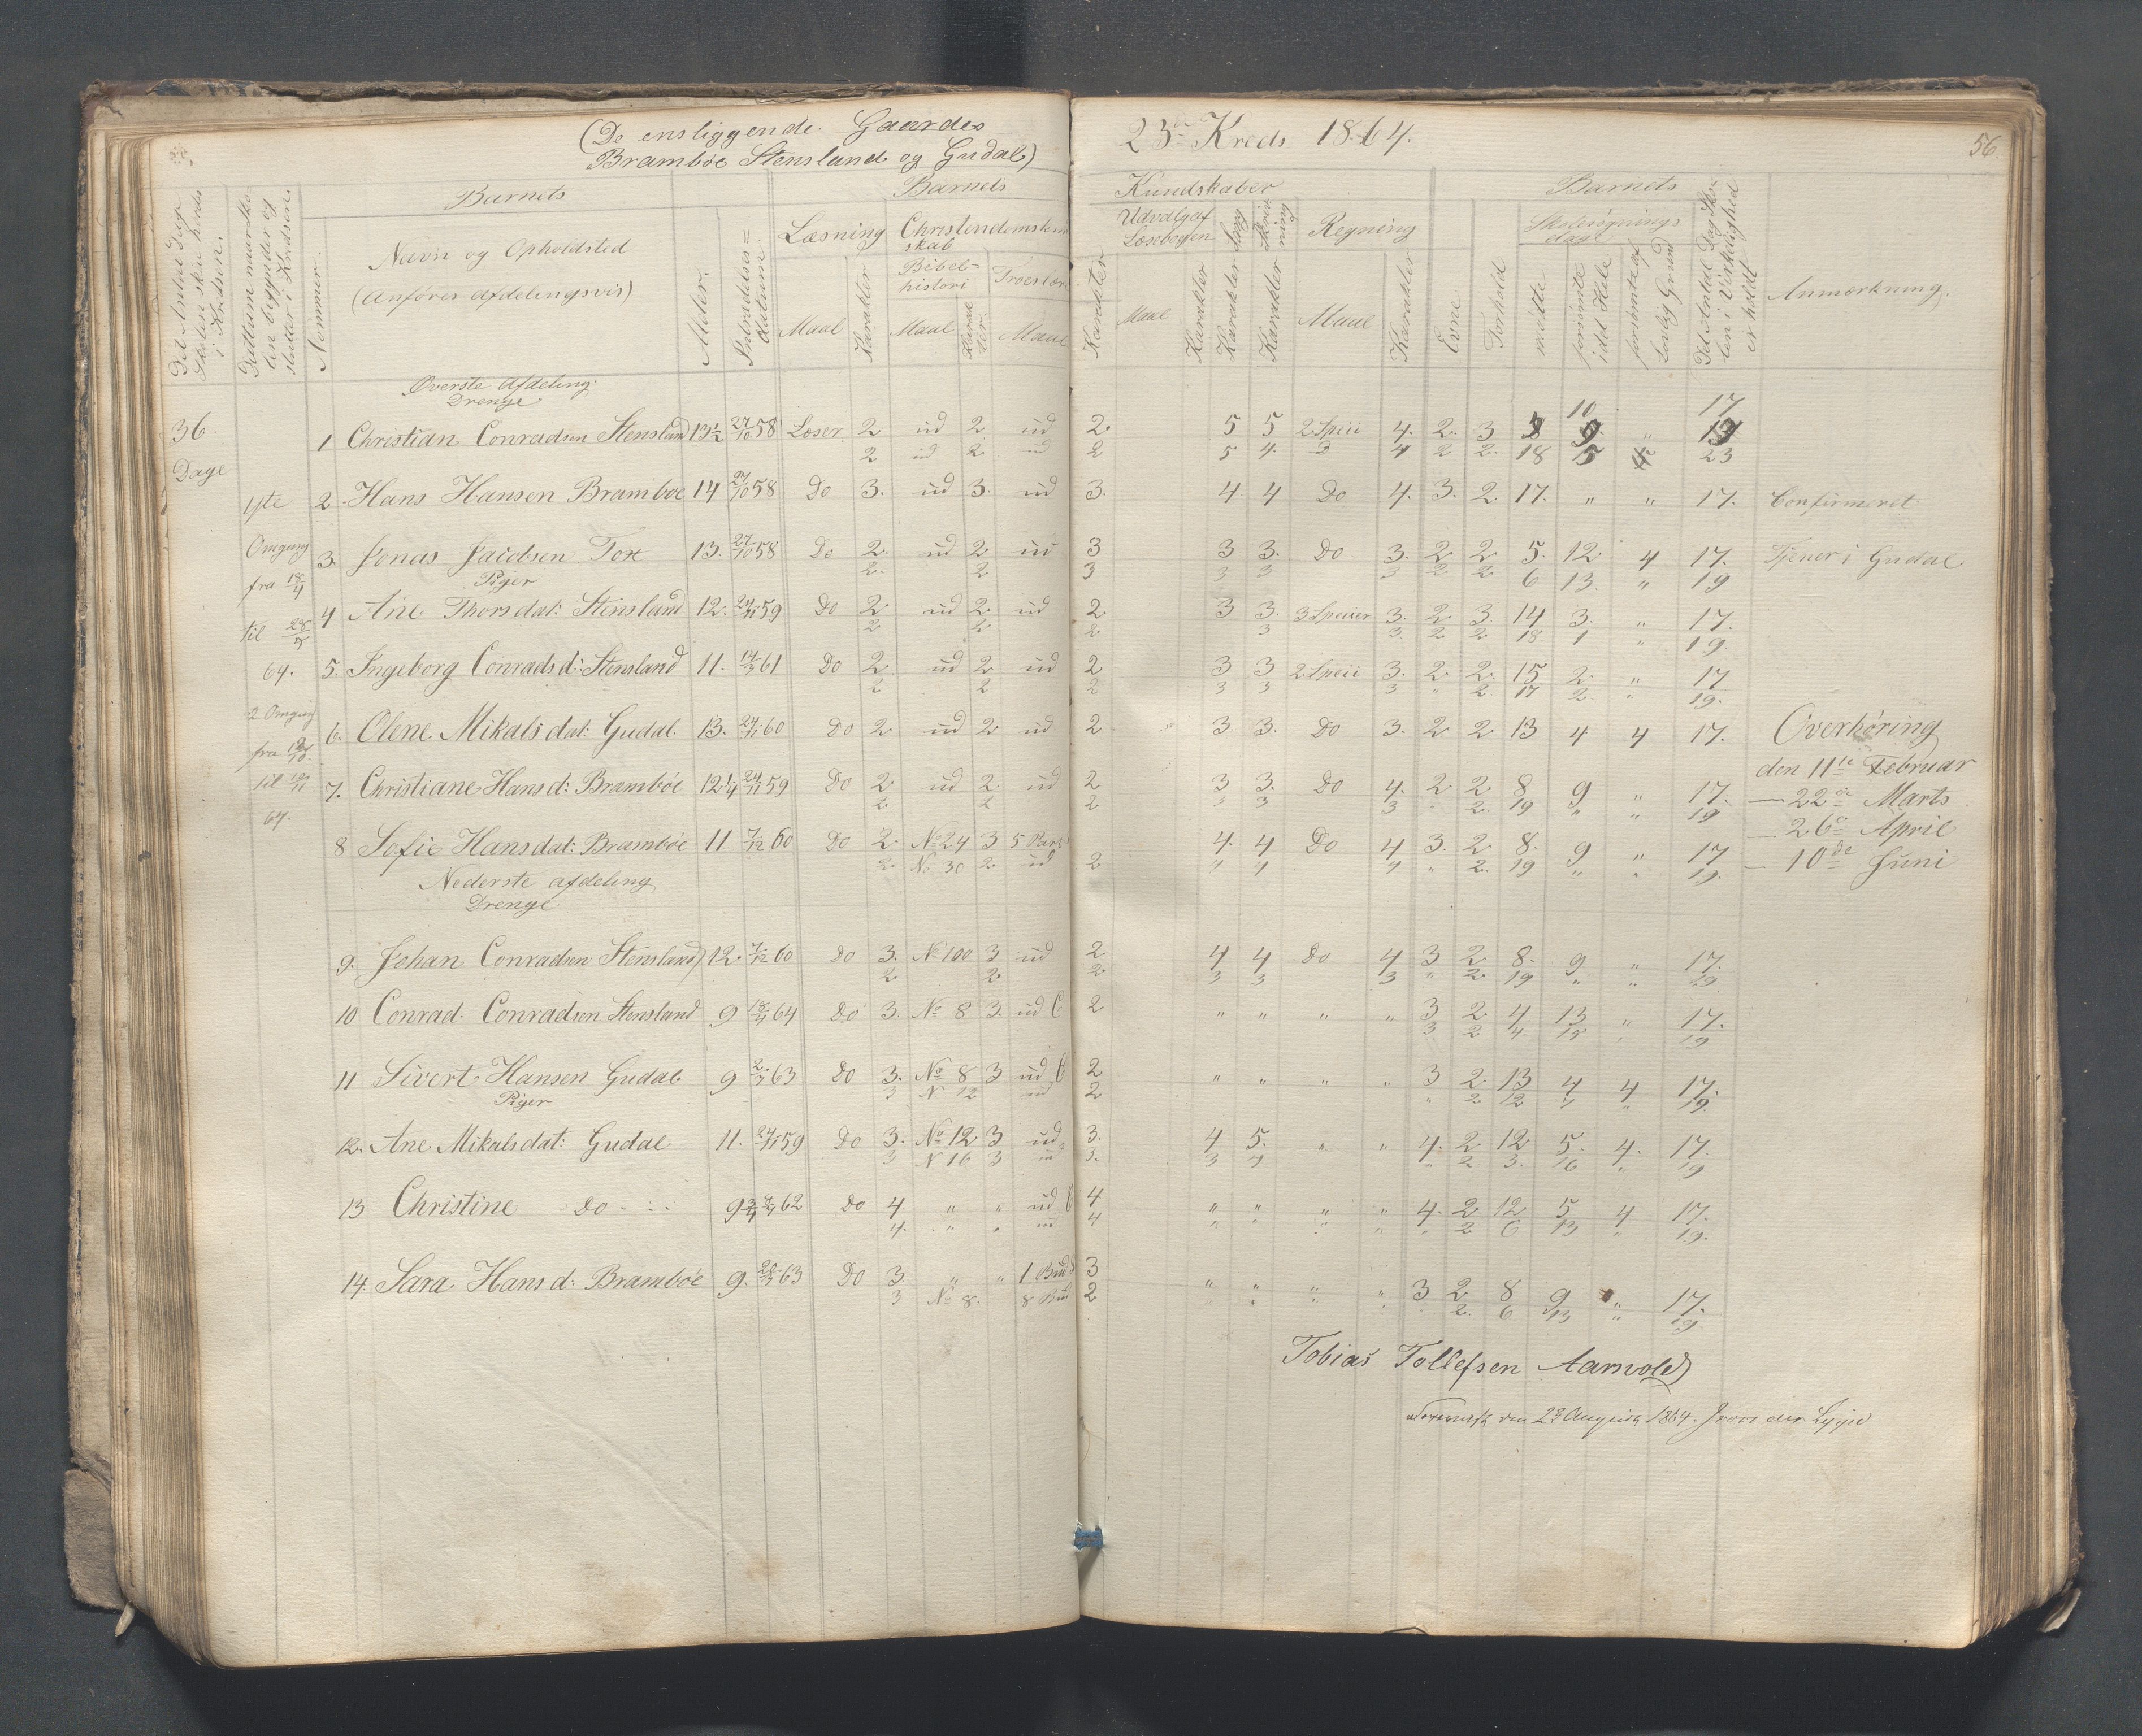 (De ensliggende Gaardes
Bramböe Stensland og Gudal)
23de Kreds 1864.
56.
Det Antal Dage Skolen skal holdes i Kredsen.
Dattum naar Skolen begynder og slutter i Kredsen.
Nommer.
Barnets
Navn og Opholdsted
(anföres afdelingsvis)
Alder.
Indtrædelses=datum
Barnets
Læsning
Maal
Karakter
Christendomskundskab
Bibel=histori
Maal
Karakter.
Troeslær
Maal
Karakter
Kundskaber
Udvalg af Læsebogen
Maal
Karakter
Sang
Karakter
Skrivning
Karakter
Regning
Maal
Karakter
Barnets
Evne
Forhold
Skolesögnings dage
mödte
forsömte idet Hele
forsömte af Lovlig Grund
Det Antal Dage Skolen i Virkelighed er holdt
Anmærkning.
Överste Afdeling.
Drenge
36
Dage
10 17
1 Christian Conradsen Stensland 13½ 27/10 58 Læser 2 ud 2 ud 2. 5 5 2 Speci 4. 2. 3 9 "
2 ud 2 ud 2 5 4. 4 2 2. 18 5 23
1ste
Omgang
fra 18/4
til 28/5
64.
2. Hans Hansen Bramboe 14 27/10 58 Do 3. ud 3. ud 3. 4. 4 Do 4. 3. 2. 17. " " 17. Confirmeret
3. Jonas Jacobsen Tox 13. 27/10 58 Do 2. ud 2 ud 3 3 3. Do 3. 2 2 5. 12 4 17. Tjener i Gudal
2. 2 3 3 3 3 2 2 6 13. " 19
Piger
4 Ane Thorsdat: Stensland 12. 24/11 59 Do 2. ud 2 ud 2 3 3. 3 Specier 3. 2 3. 14 3. " 17.
2 2. 2 3 3. 2 2 18 1 " 19.
5. Ingeborg Conradsd: Stensland 11. 14/3 61 Do 2 ud 2 ud 2 3 3 2 Speci 3. 2. 2. 15 2. " 17
2 2 2 3 3 3 " 2 17 2. " 19.
2 Omgang
fra
til
64.
6. Olene Mikalsdat: Gudal. 13. 24/11 60 Do 2. ud 2 ud 2 3 3. Do 3. 2 2 13 4 4 17.
Overhöring
den 11te Februar
— 22de Marts
— 26de April
— 10de Juni
7. Christiane Hansd: Bramböe 12¼ 24/11 59 Do 2. ud 2. ud 2 3 3. Do 4. 2 2 8 9 " 17.
2 2 2 3 3 3 2. 19 " " 19
8 Sofie Hansdat: Bramböe 11. 7/12 60 Do 2. No 24 3 5 Part 4. 4 Do 4 3. 2 8. 9 " 17
2. No 30 2. ud 2 4 4 4 " 2. 19 " " 19.
Nederste afdeling
Drenge
9. Johan Conradsen Stensland 12. 7/12 60 Do 3. No 100 3 ud 2 4 4 Do 4 3 2 8. 9 " 17.
2 2. 2 3 3 3 " 2. 19 " " 19
10 Conrad Conradsen Stensland 9 18/4 64 Do 3. No 8 3. ud 2 " " " " 3 2 4 13 " 17.
3 2 4. 15 19
11 Sivert Hansen Gudal 9 63 Do 3. No 8 3 ud 2 " " " " 3 2 13 4 4 17.
3 N 12 ud 2 " 2 12 7 " 19.
Piger
12. Ane Mikalsdat: Gudal 11. 24/11 59 Do 3. No 12 3 ud 3. 4 5. " " 4. 2 12 5. 4. 17.
3 N 16 3 ud 3. 3 4 " 2 3. 16 " 19
13 Christine Do 9¾ 62 Do 4. " " ud 4 " " " " 4. 2 12 5 4 17.
4. " " ud 4 " " " " " 2 6 13 " 19.
14. Sara Hansd: Bramböe 9. 63 Do 3. " " 1 Bud 3 " " " " 3 2 8 9 " 17.
3 No 8. 8 Bud 2 2. 6 13 " 19.
Tobias Tollefsen Aarvold
den August 1864.